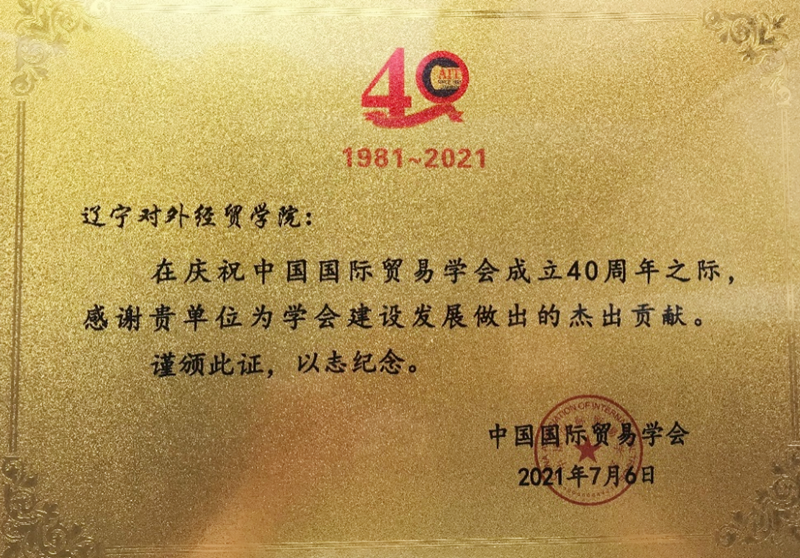 40
1981~2021
辽宁对外经贸学院：
在庆祝中国国际贸易学会成立40周年之际，
感谢贵单位为学会建设发展做出的杰出贡献。
谨颁此证，以志纪念。
中国国际贸易学会
2021年7月6日